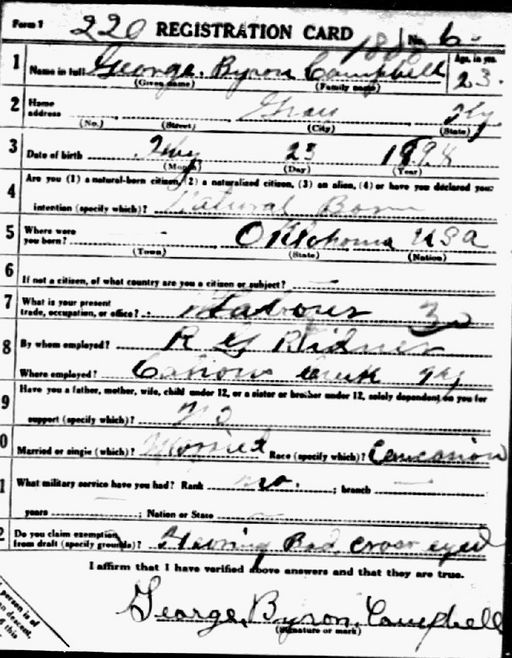 Form 1 220 REGISTRATION CARD No. 6-
1 Name in full George Byron Campbell Age, in yrs. 23.
(Given name) (Family name)
2 Home address Gray Ky
(No.) (Street) (City) (State)
3 Date of birth 23 1894
(Month) (Day) (Year)
4 Are you (1) a natural-born citizen, (2) a naturalized citizen, (3) an alien, (4) or have you declared your
intention (specify which)? Natural Born
5 Where were you born? Oklohoma USA
(Town) (State) (Nation)
6 If not a citizen, of what country are you a citizen or subject?
7 What is your present trade, occupation, or office? Labourer
8 By whom employed? R G
Where employed? Ky
9 Have you a father, mother, wife, child under 12, or a sister or brother under 12, solely dependent on you for
support (specify which)? No
0 Married or single (which)? Married Race (specify which)? Caucasion
1 What military service have you had? Rank no. ; branch
years ; Nation or State
2 Do you claim exemption from draft (specify grounds)? Bad cross eyed
I affirm that I have verified above answers and that they are true.
George Byron Campbell
(Signature or mark)
person is of
an descent,
this